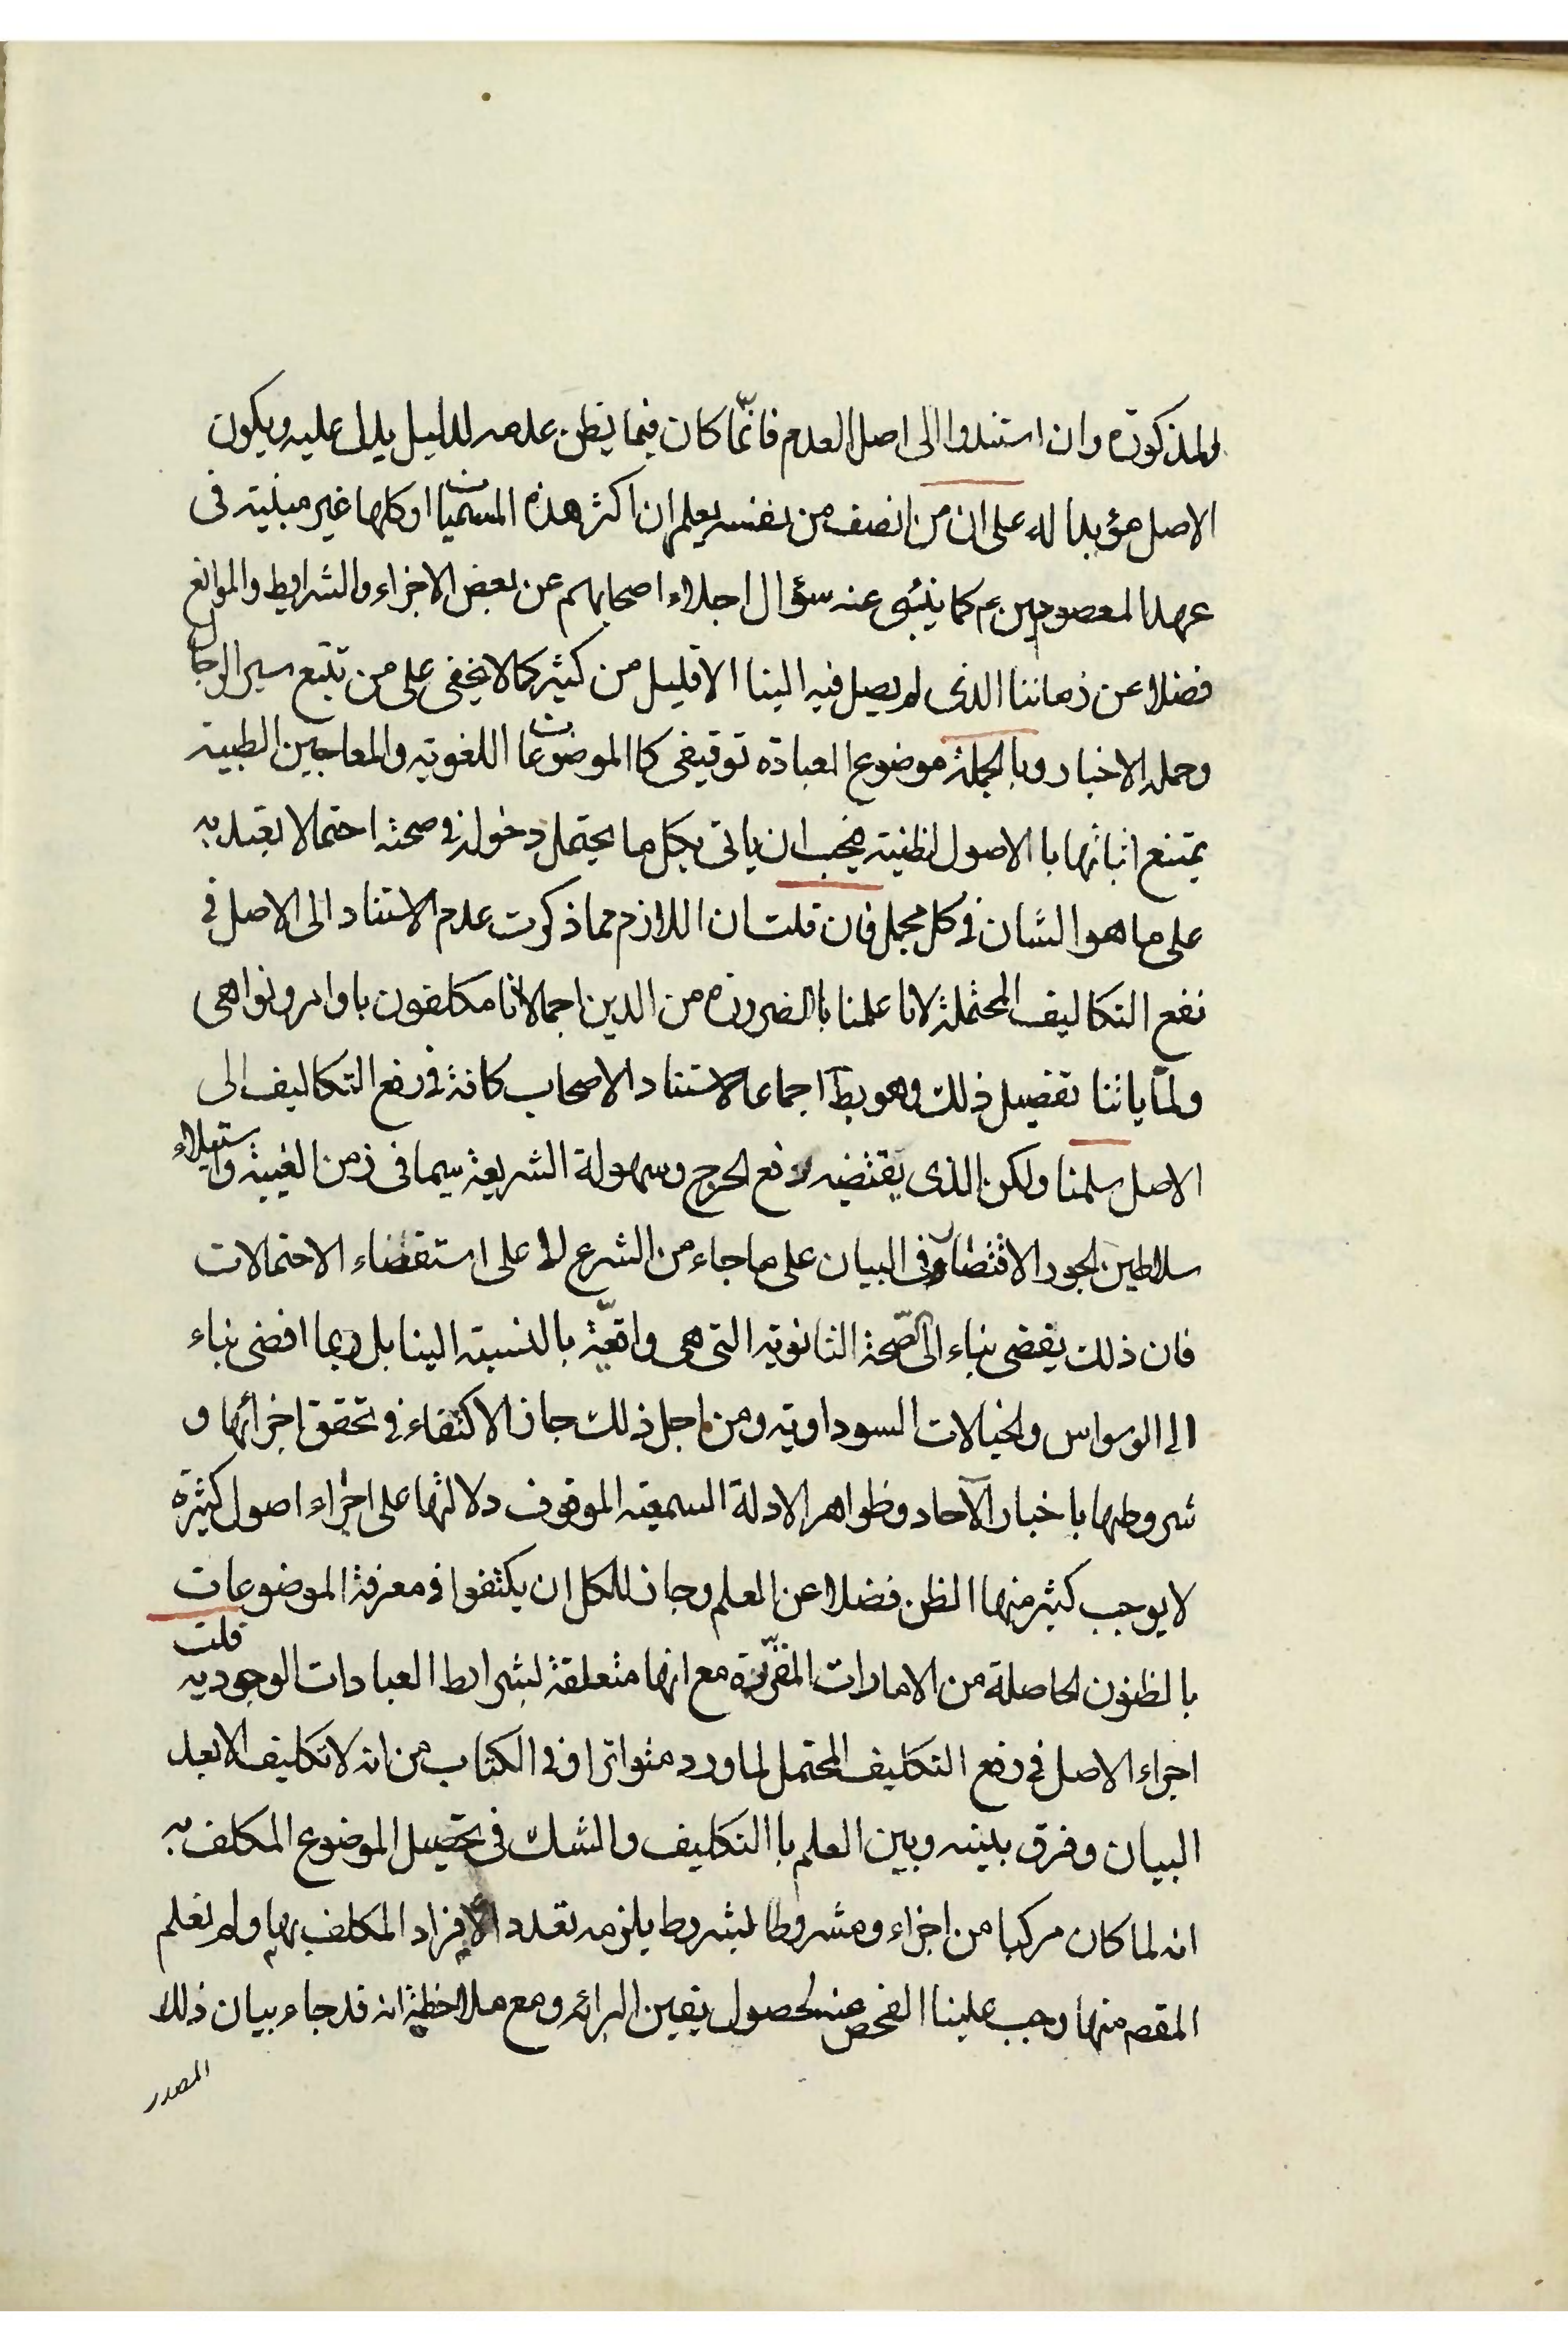 والمذكورة وان استندوا الى اصل العدم فانّما كان فيما يظن عدمه لدليل يدل عليه ويكون
الاصل مؤيدا له على ان من انصف من نفسه يعلم ان اكثر هذه المسميات او كلها غير مبنية فى
عهد المعصومين ع كما ينبئ عنه سؤال اجلاء اصحابهم عن بعض الاجزاء والشرايط والموانع
فضلا عن زماننا الذى لم يصل فيه الينا الا قليل من كثير كما لا يخفى على من تتبع سير الرجال
وحملة الاخبار وبالجملة موضوع العبادة توقيفى كا الموضوعات اللغوية والمعاجين الطبية
يمتنع اثباتها با الاصول الظنية فيجب ان ياتى بكل ما يحتمل دخوله فى صحته احتمالا يعتد به
على ما هو الشان فى كل مجمل فان قلت ان اللازم مما ذكرت عدم الاستناد الى الاصل فى
نفع التكاليف المحتملة لانا علمنا با الضرورة من الدين اجمالا انا مكلفون باوامر ونواهى
ولمّا ياتنا تفصيل ذلك وهو بط اجماعا لاستناد الاصحاب كافة فى رفع التكاليف الى
الاصل سلمنا ولكن الذى يقتضيه رفع الحرج وسهولة الشريعة سيما فى زمن الغيبة واستيلاء
سلاطين الجور الاقتصار فى البيان على ما جاء من الشرع لا على استقصاء الاحتمالات
فان ذلك يفضى بناء الى الصحة الثانوية التى هى واقعيّة بالنسبة الينا بل ربما افضى بناء
الى الوسواس والخيالات السوداوية ومن اجل ذلك جاز الاكتفاء فى تحقق اجزائها و
شروطها باخبار الآحاد وظواهر الادلة السمعية الموقوف دلالتها على اجراء اصول كثيرة
لا يوجب كثير منها الظن فضلا عن العلم وجاز للكل ان يكتفوا فى معرفة الموضوعات
بالظنون الحاصلة من الامارات المقرّرة مع انها متعلقة بشرايط العبادات الوجودية قلت
اجراء الاصل فى رفع التكليف المحتمل لما ورد متواترا وفى الكتاب من انه لا تكليف الا بعد
البيان وفرق بينه وبين العلم با التكليف والشك فى تحصيل الموضوع المكلف به
انه لما كان مركبا من اجزاء ومشروطا بشروط يلزمه تعدد الافراد المكلف بها ولم نعلم
المقصم منها وجب علينا الفحص عنه لحصول يقين البرائه ومع ملاحظة انه قد جاء بيان ذلك
المصدر